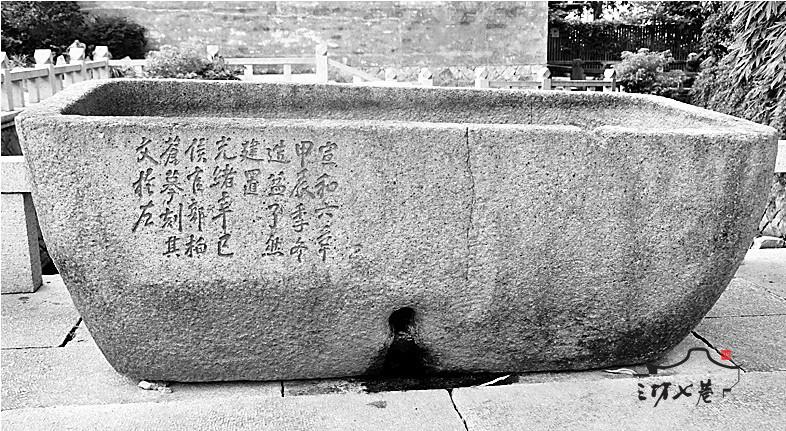 宣和六年
甲辰季冬
造盆了然
建置
光緒辛巳
侯官郭柏
蒼摹刻其
文於左
三坊七巷